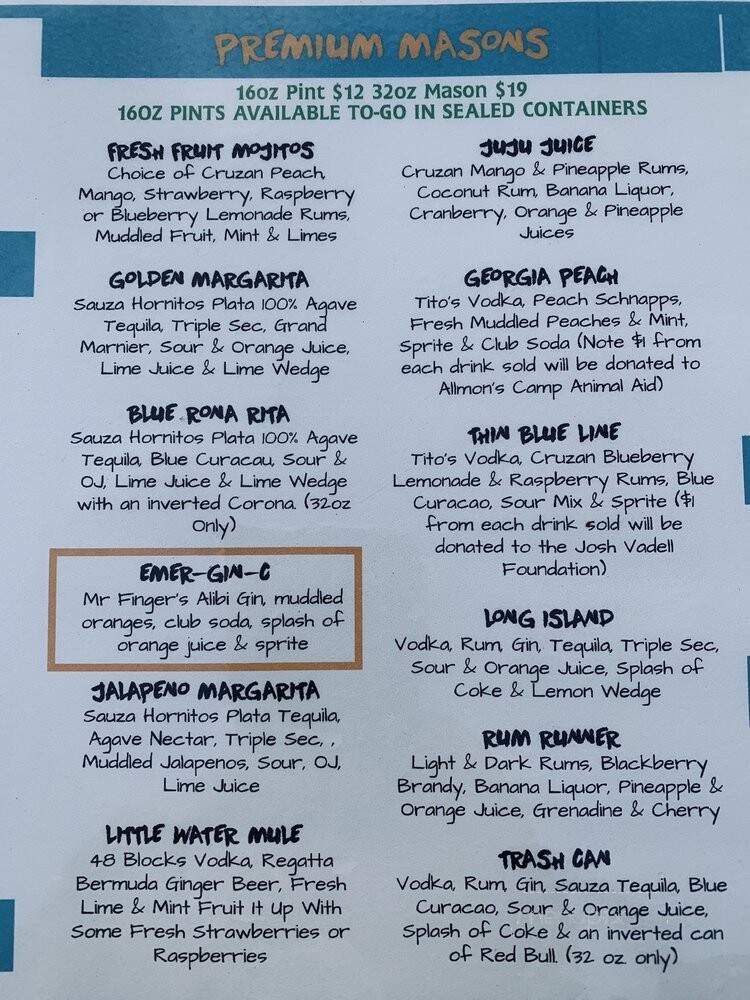 PREMIUM MASONS
16oz Pint $12 32oz Mason $19
16OZ PINTS AVAILABLE TO-GO IN SEALED CONTAINERS
FRESH FRUIT MOJITOS
Choice of Cruzan Peach,
Mango, Strawberry, Raspberry
or Blueberry Lemonade Rums,
Muddled Fruit, Mint & Limes
GOLDEN MARGARITA
Sauza Hornitos Plata 100% Agave
Tequila, Triple Sec, Grand
Marnier, Sour & Orange Juice,
Lime Juice & Lime Wedge
BLUE RONA RITA
Sauza Hornitos Plata 100% Agave
Tequila, Blue Curacau, Sour &
OJ, Lime Juice & Lime Wedge
with an inverted Corona. (32oz
Only)
EMER-GIN-C
Mr Finger's Alibi Gin, muddled
oranges, club soda, splash of
orange juice & sprite
JALAPENO MARGARITA
Sauza Hornitos Plata Tequila,
Agave Nectar, Triple Sec, ,
Muddled Jalapenos, Sour, OJ,
Lime Juice
LITTLE WATER MULE
48 Blocks Vodka, Regatta
Bermuda Ginger Beer, Fresh
Lime & Mint Fruit It Up With
Some Fresh Strawberries or
Raspberries
JUJU JUICE
Cruzan Mango & Pineapple Rums,
Coconut Rum, Banana Liquor,
Cranberry, Orange & Pineapple
Juices
GEORGIA PEACH
Tito's Vodka, Peach Schnapps,
Fresh Muddled Peaches & Mint,
Sprite & Club Soda (Note $1 from
each drink sold will be donated to
Allmon's Camp Animal Aid)
THIN BLUE LINE
Tito's Vodka, Cruzan Blueberry
Lemonade & Raspberry Rums, Blue
Curacao, Sour Mix & Sprite ($1
from each drink sold will be
donated to the Josh Vadell
Foundation)
LONG ISLAND
Vodka, Rum, Gin, Tequila, Triple Sec,
Sour & Orange Juice, Splash of
Coke & Lemon Wedge
RUM RUNNER
Light & Dark Rums, Blackberry
Brandy, Banana Liquor, Pineapple &
Orange Juice, Grenadine & Cherry
TRASH CAN
Vodka, Rum, Gin, Sauza Tequila, Blue
Curacao, Sour & Orange Juice,
Splash of Coke & an inverted can
of Red Bull. (32 oz only)